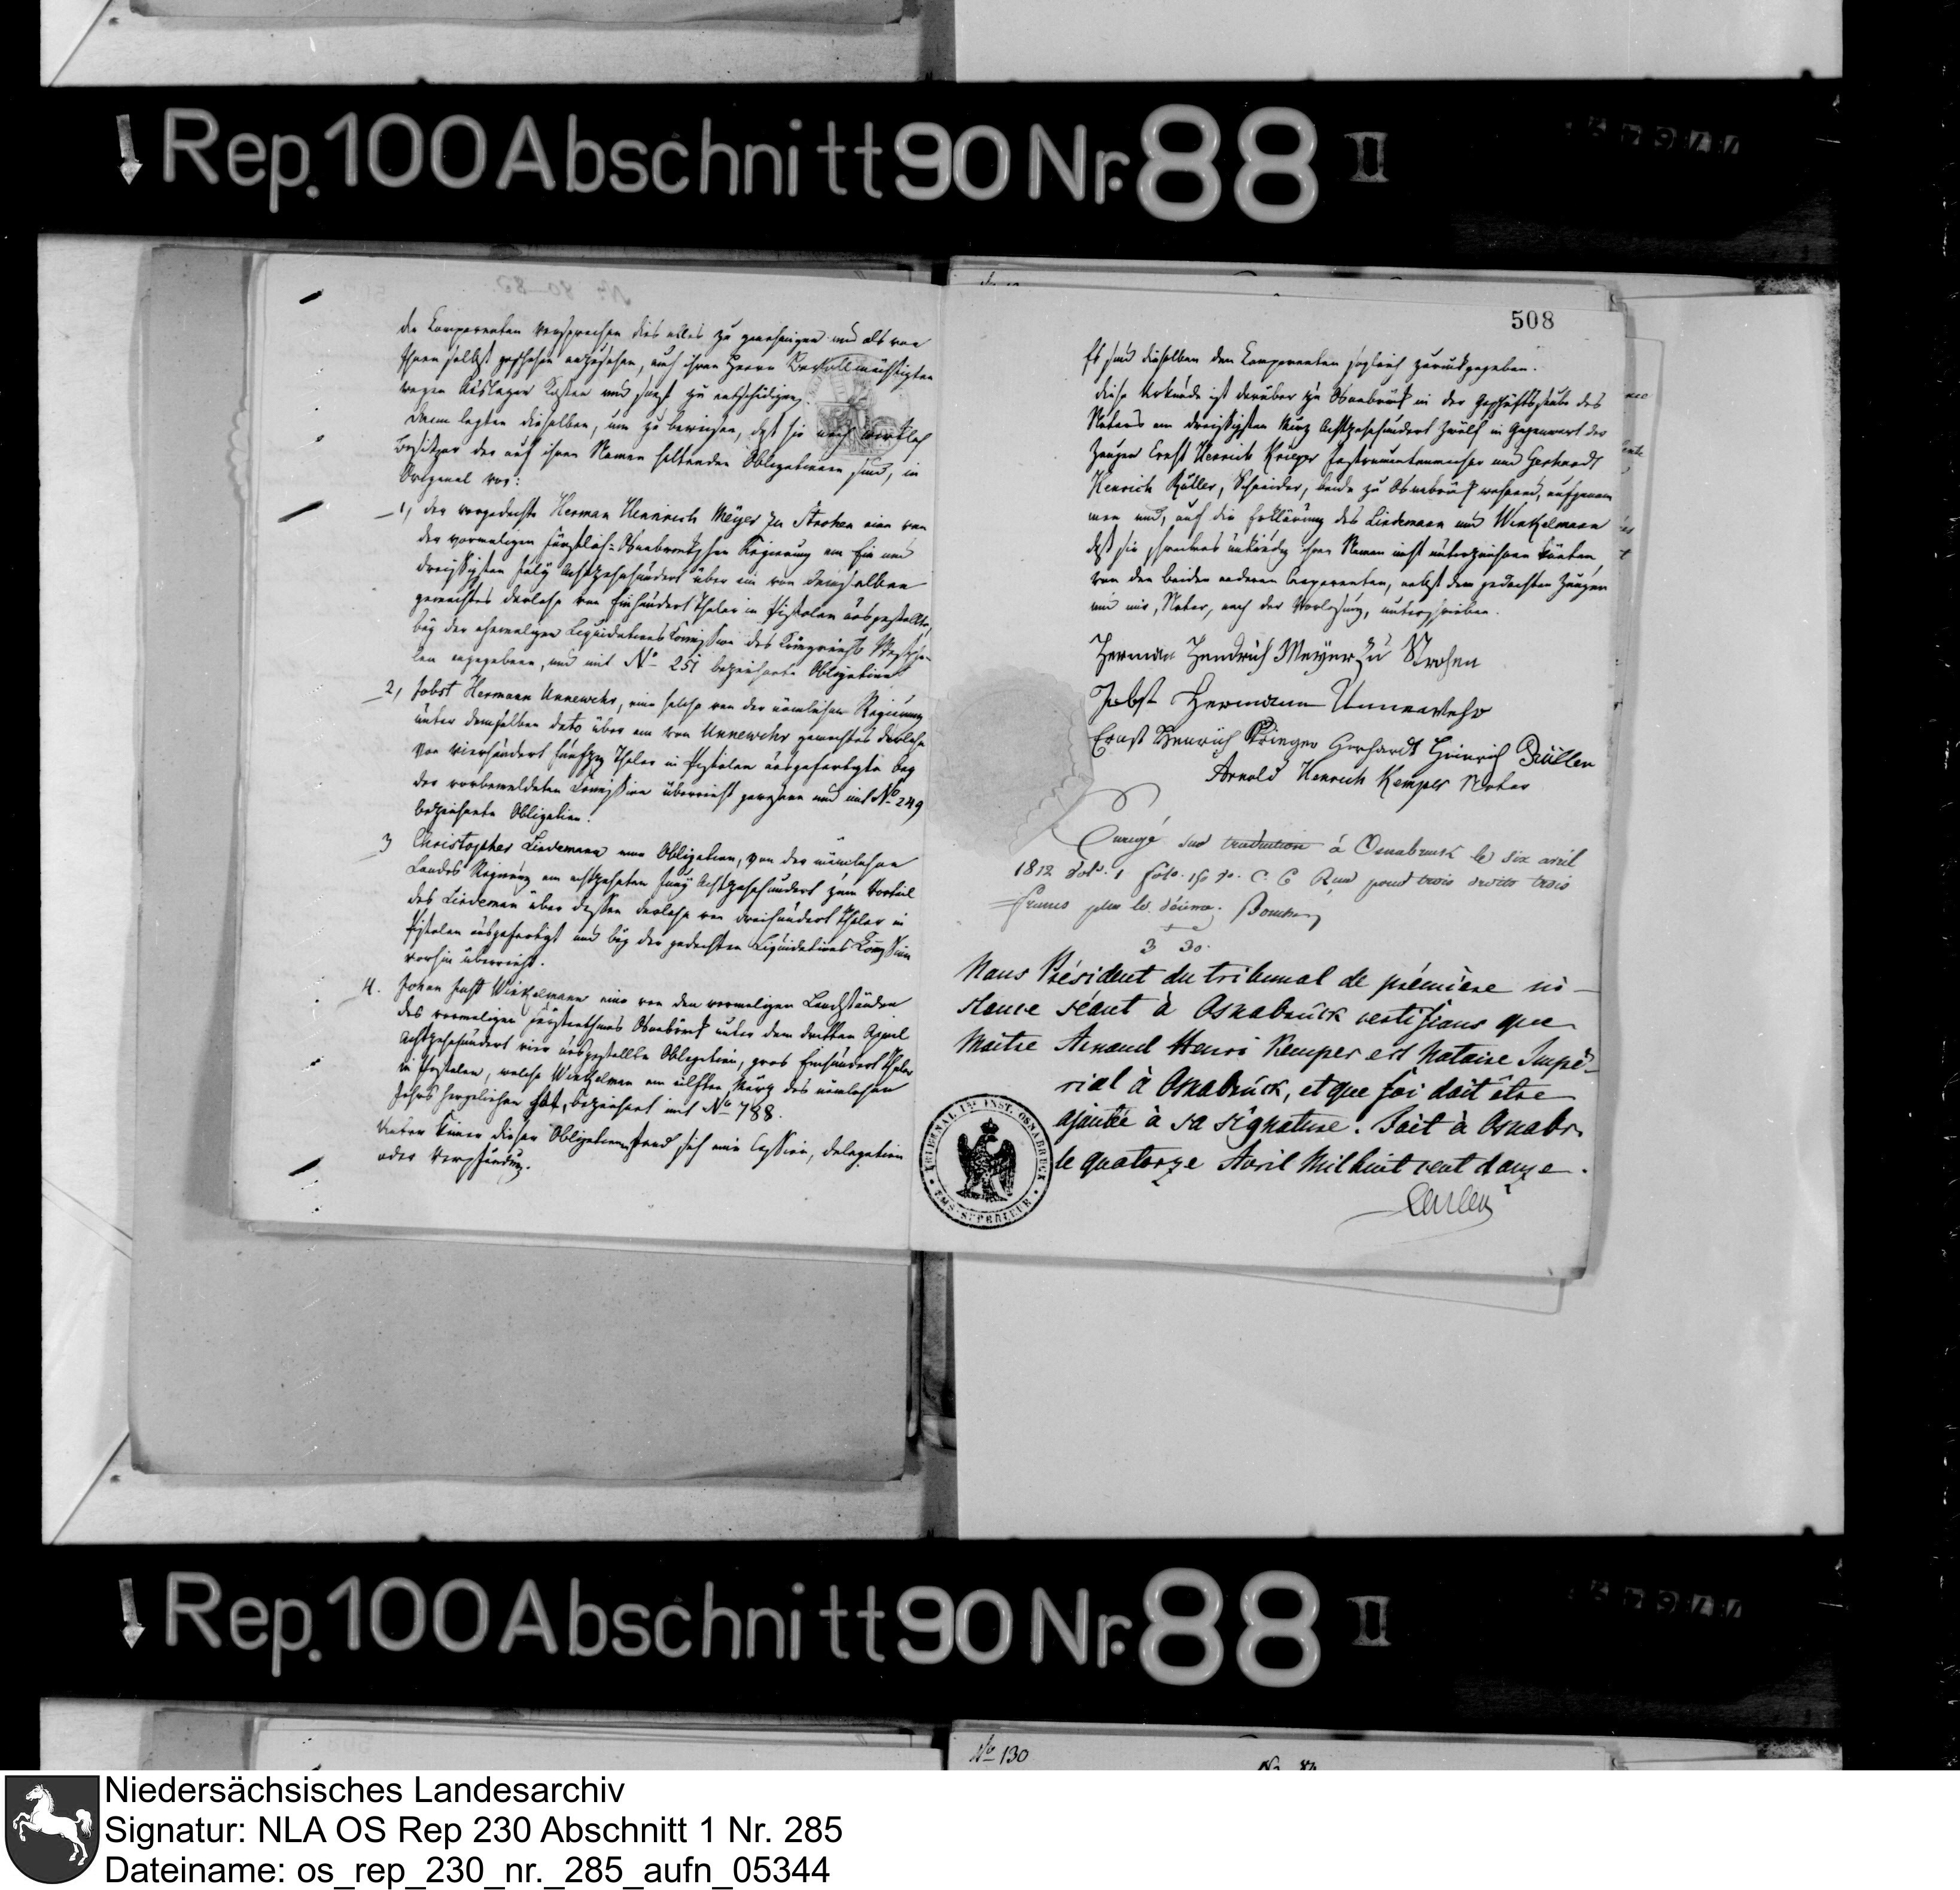 Rep. 100 Abschnitt 90 Nr. 88 II
die Comparenten versprechen dies alles zu genehmigen und als von
Ihnen selbst geschehen anzusehen, auch ihren Herrn Bevollmächtigten
wegen Auslagen Kosten und sonst zu entschädigen.
Dann legten dieselben, um zu beweisen, daß sie noch wirklich
Besitzer der auf ihren Namen haltenden Obligationen sind, in
Original vor:
1, der vorgedachte Herman Heinrich Meÿer zu Strohen eine von
der vormaligen Fürstlich-Osnabrückschen Regierung am Ein und
dreißigsten Julÿ Achtzehnhundert über ein von demselben
gemachtes Darlehn von Einhundert Thaler in Pistolen ausgestellte,
beÿ der ehemaligen Liquidations Commission des Königreichs Westpha-
len angegebene, und mit No 251 bezeichnete Obligation
2, Jobst Hermann Unnewehr, eine solche von der nämlichen Regierung
unter demselben dato über ein von Unnewehr gemachtes Darlehn
von vierhundert fünfzig Thaler in Pistolen ausgefertigte beÿ
der vorbemeldeten Commission überreicht gewesene und mit No 249
bezeichnete Obligation.
3 Christopher Lindemann eine Obligation, von der nämlichen
Landes Regierung am achtzehnten Junÿ Achtzehnhundert zum Vortheil
des Lindeman über dessen Darlehn von dreihundert Thaler in
Pistolen ausgefertigt und beÿ der gedachten Liquidations Commission
vorhin überreicht.
4. Johan Ernst Winkelmann eine von den vormaligen Landständen
des vormaligen Fürstenthums Osnabrück unter dem dritten April
Achtzehnhundert vier ausgestellte Obligation, groß Einhundert Thaler
in Pistolen, welche Winkelman am eilften März des nämlichen
Jahrs hergeliehen hat, bezeichnet mit No 788.
Unter keiner dieser Obligationen fand sich eine Cession, Delegation
oder Verpfändung.
508
Es sind dieselben den Comparenten sogleich zurückgegeben.
Diese Urkunde ist darüber zu Osnabrück in der Geschäftsstube des
Notars am dreißigsten März Achtzehnhundert Zwölf in Gegenwart der
Zeugen Ernst Henrich Krieger Instrumentenmacher und Gerhardt
Henrich Büller, Schneider, beide zu Osnabrück wohnend, aufgenom
men und, auf die Erklärung des Lindemann und Winkelmann
daß sie schreibens unkundig ihren Namen nicht unterzeichnen könten,
von den beiden anderen Comparenten, nebst den gedachten Zeugen
und mir, Notar, nach der Vorlesung, unterschrieben.
Herman Hendrich Meyer zu Strohen
Jobst Hermann Unnewehr
Ernst Henrich Krieger Gerhardt Heinrich Büller
Arnold Henrich Kemper Notar
sur traduction à Osnabruck le six avril
1812 vol. 1 folo. 15 Ro. C. 6 Reçu pour trois droits trois
francs plus le décime.
3 30.
Nous Président du tribunal de prémiere in-
stance séant à Osnabrück certifions que
Maitre Arnaud Henri Kemper est Notaire Impé-
rial à Osnabrück, et que foi doit être
ajoutée à sa signature. Fait à Osnabr.
le quatorze Avril Mil huit cent douze.
TRIBUNAL 1RE INST. OSNABRUCK
EMS-SUPÉRIEUR
Rep. 100 Abschnitt 90 Nr. 88 II
No 130
Niedersächsisches Landesarchiv
Signatur: NLA OS Rep 230 Abschnitt 1 Nr. 285
Dateiname: os_rep_230_nr._285_aufn_05344